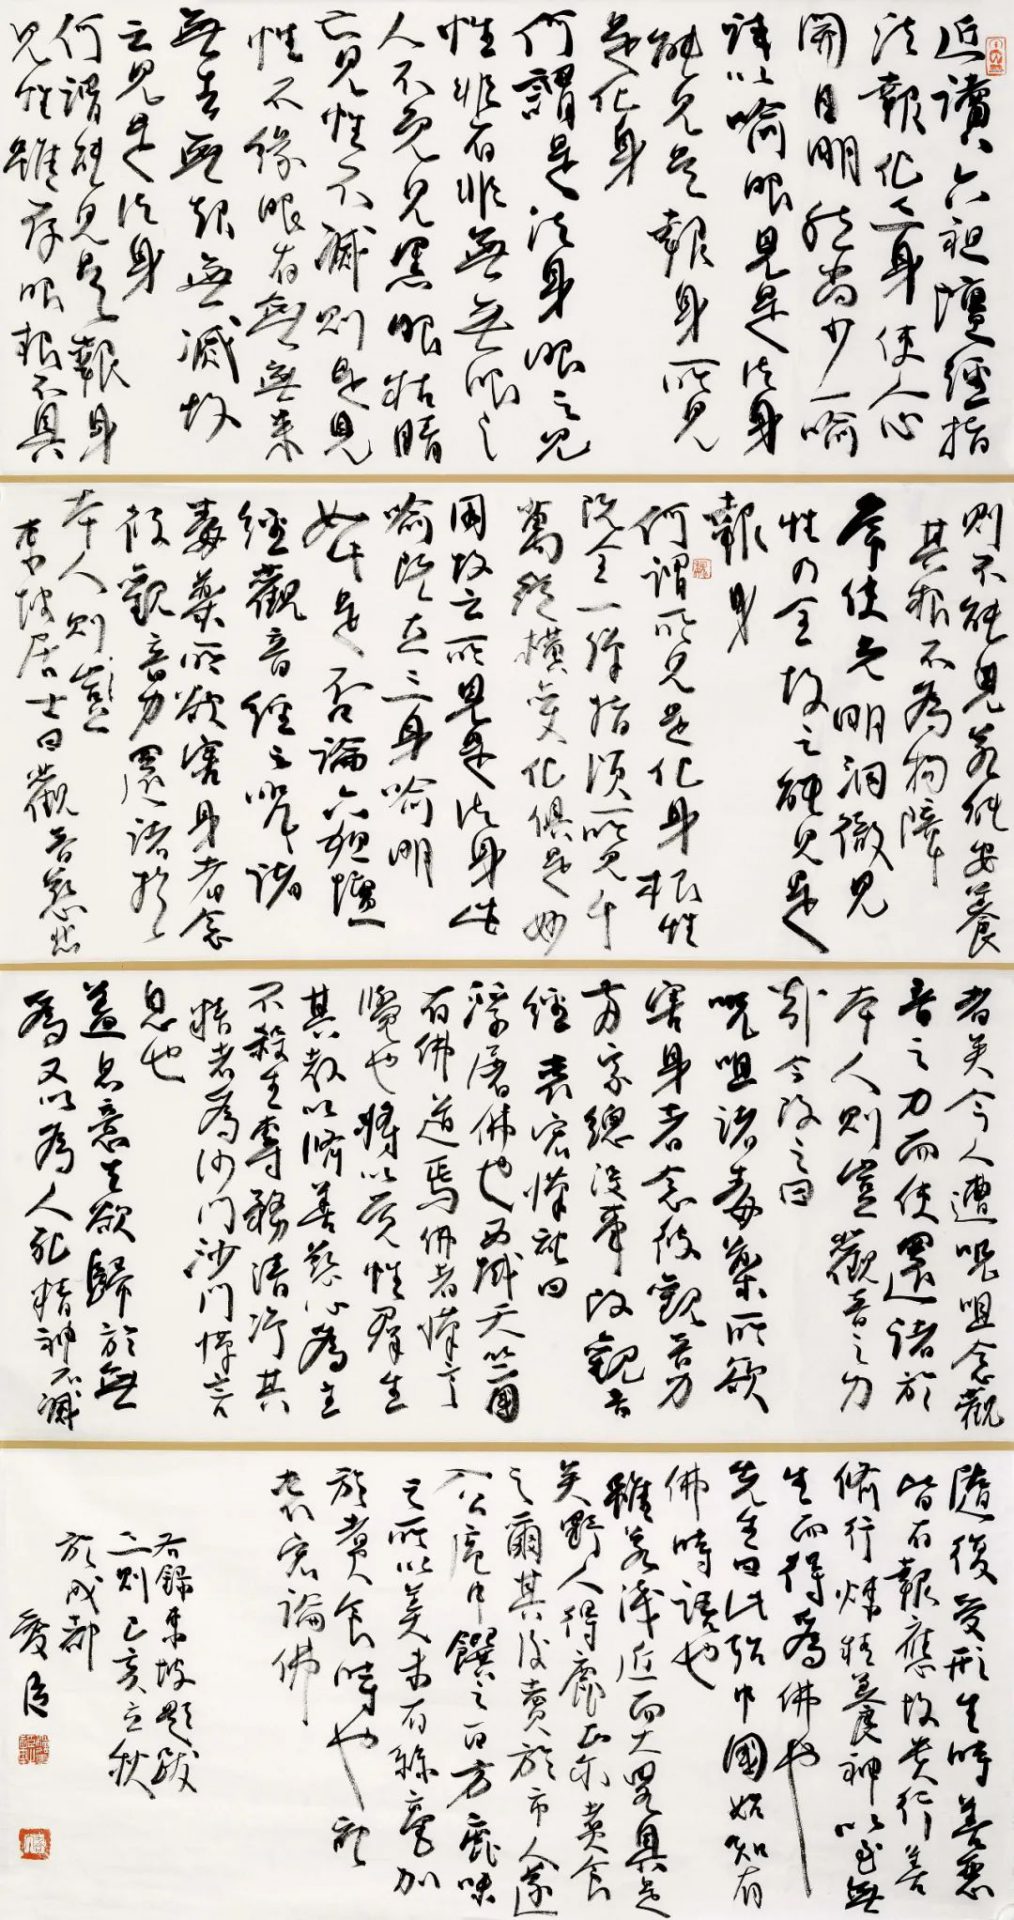 近讀六祖壇經指
法報化三身使人心
開目明然尚少一喻
試以喻眼見是法身
能見是報身所見
是化身
何謂是法身眼之見
性非有非無無眼之
人不免見黑眼枯睛
亡見性不滅則是見
性不緣眼有無無來
無去無起無滅故
云見是法身
何謂能見是報身
見性雖存眼根不具
則不能見若能安養
其根不為物障
常使光明洞徹見
性乃全故云能見是
報身
何謂所見是化身根性
既全一彈指頃所見千
萬縱橫變化俱是妙
用故云所見是法身此
喻既立三身喻明
如此是否論六祖壇
經觀音經云呪諸
毒藥所欲害身者念
彼觀音力還諸於
本人則豈
東坡居士曰觀音慈悲
者矣今人遭呪咀念觀
音之力而使還諸於
本人則豈觀音之力
哉今改之曰
呪咀諸毒藥所欲
害身者念彼觀音力
两家總没事改觀音
經 袁宏漢紀曰
浮屠佛也西域天竺國
有佛道焉佛者漢言
覺也將以覺性群生
其教以脩善慈心為主
不殺生專務清净其
精者為沙門沙門漢言
息也
蓋息意去欲歸於無
為又以為人死精神不滅
隨復受形生時善惡
皆有報應故贵行善
脩行煉精養神以至無
生而得為佛也
先生曰此殆中國始知有
佛時語也
雖若淺近而大畧具足
矣野人得鹿正尔煮食
之爾其後賣於市人遂
入公庖中饌之百方鹿味
之所以美未有絲毫加
於煮食時也 記
袁宏論佛
右録東坡題跋
三則己亥立秋
於成都